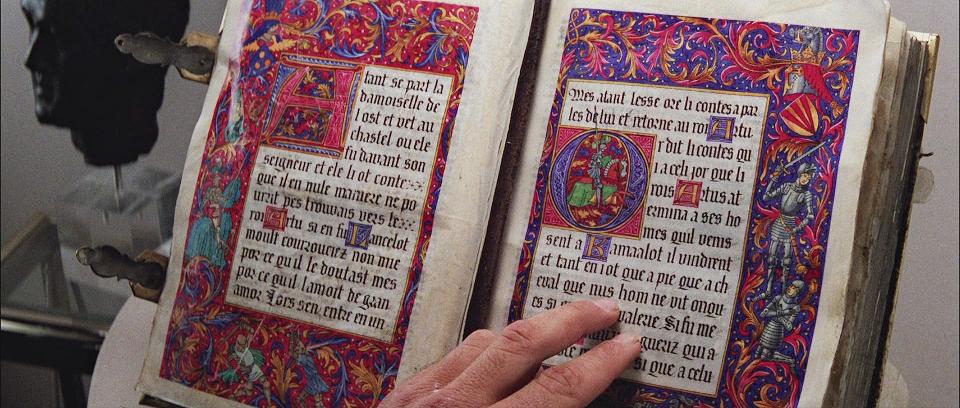 A tant se part la
damoiselle de
l ost et vet au
chastel ou ele
fu davant son
seigneur et ele li ot conte
que il en nule maniere ne po
urut pes trouvais vers le
roi Artu si en fu Lancelot
moult courouciez non mie
por ce qu il le doutast mes
por ce qu il lamoit de gran
amor Lors sen entre en un
Mes atant lesse ore li contes a pa
les de lui et retorne au roi Artu
O r dit li contes qu
a cel jor que li
rois Artus at
ermina a ses ho
mes quil venis
sent a Kamaalot il vindrent
et tant en i ot que a pe que a ch
eval que nus hom ne vit onqu
es si valerie Si fu me
gueriz qui a
si que a celu